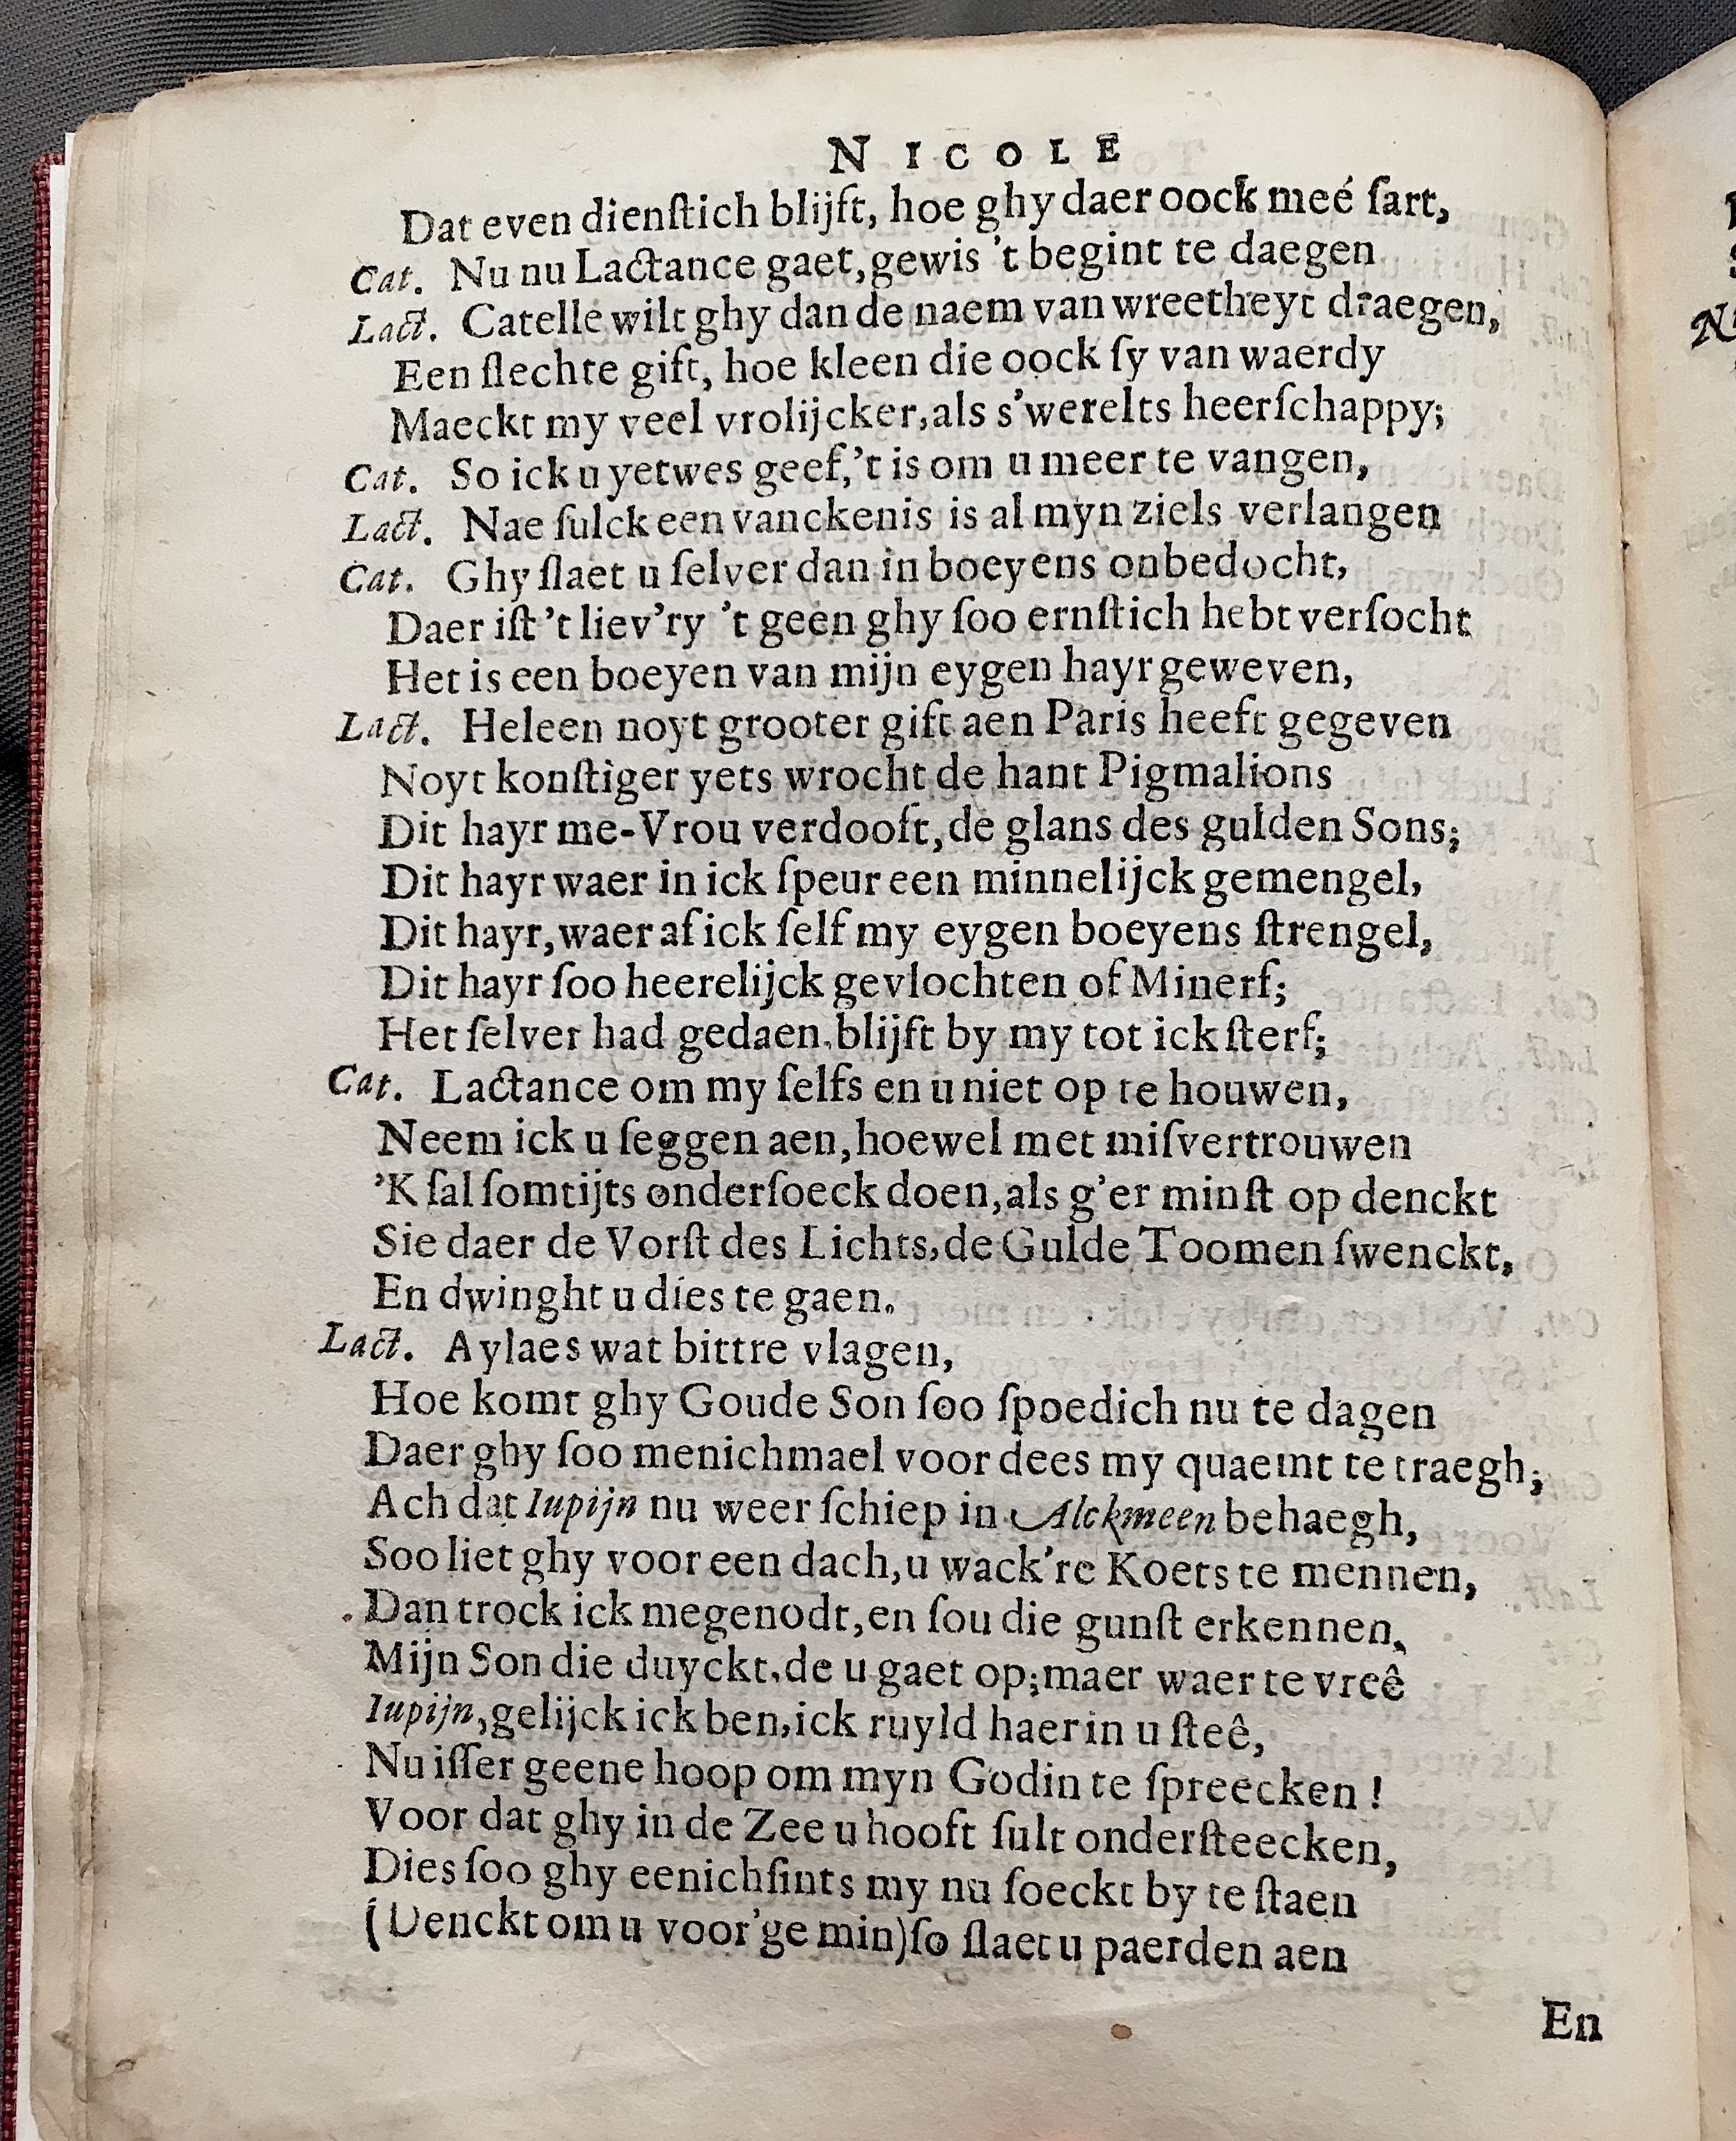 NICOLE
Dat even dienſtich blijft, hoe ghy daer oock meé ſart,
Cat. Nu nu Lactance gaet, gewis 't begint te daegen
Lact. Catelle wilt ghy dan de naem van wreetheyt draegen,
Een ſlechte gift, hoe kleen die oock ſy van waerdy
Maeckt my veel vrolijcker, als s'werelts heerſchappy;
Cat. So ick u yetwes geef, 't is om u meer te vangen,
Lact. Nae ſulck een vanckenis is al myn ziels verlangen
Cat. Ghy ſlaet u ſelver dan in boeyens onbedocht,
Daer iſt 't liev'ry 't geen ghy ſoo ernſtich hebt verſocht
Het is een boeyen van mijn eygen hayr geweven,
Lact. Heleen noyt grooter gift aen Paris heeft gegeven
Noyt konſtiger yets wrocht de hant Pigmalions
Dit hayr me-Vrou verdooft, de glans des gulden Sons;
Dit hayr waer in ick ſpeur een minnelijck gemengel,
Dit hayr, waer af ick ſelf my eygen boeyens ſtrengel,
Dit hayr ſoo heerelijck gevlochten of Minerf;
Het ſelver had gedaen, blijft by my tot ick ſterf;
Cat. Lactance om my ſelfs en u niet op te houwen,
Neem ick u ſeggen aen, hoewel met miſvertrouwen
'K ſal ſomtijts onderſoeck doen, als g'er minſt op denckt
Sie daer de Vorſt des Lichts, de Gulde Toomen ſwenckt,
En dwinght u dies te gaen.
Lact. Aylaes wat bittre vlagen,
Hoe komt ghy Goude Son ſoo ſpoedich nu te dagen
Daer ghy ſoo menichmael voor dees my quaemt te traegh;
Ach dat Iupijn nu weer ſchiep in Alckmeen behaegh,
Soo liet ghy voor een dach, u wack're Koets te mennen,
Dan trock ick megenodt, en ſou die gunſt erkennen,
Mijn Son die duyckt, de u gaet op; maer waer te vreê
Iupijn, gelijck ick ben, ick ruyld haer in u ſteê,
Nu iſſer geene hoop om myn Godin te ſpreecken!
Voor dat ghy in de Zee u hooft ſult onderſteecken,
Dies ſoo ghy eenichſints my nu ſoeckt by te ſtaen
(Denckt om u voor'ge min) ſo ſlaet u paerden aen
En